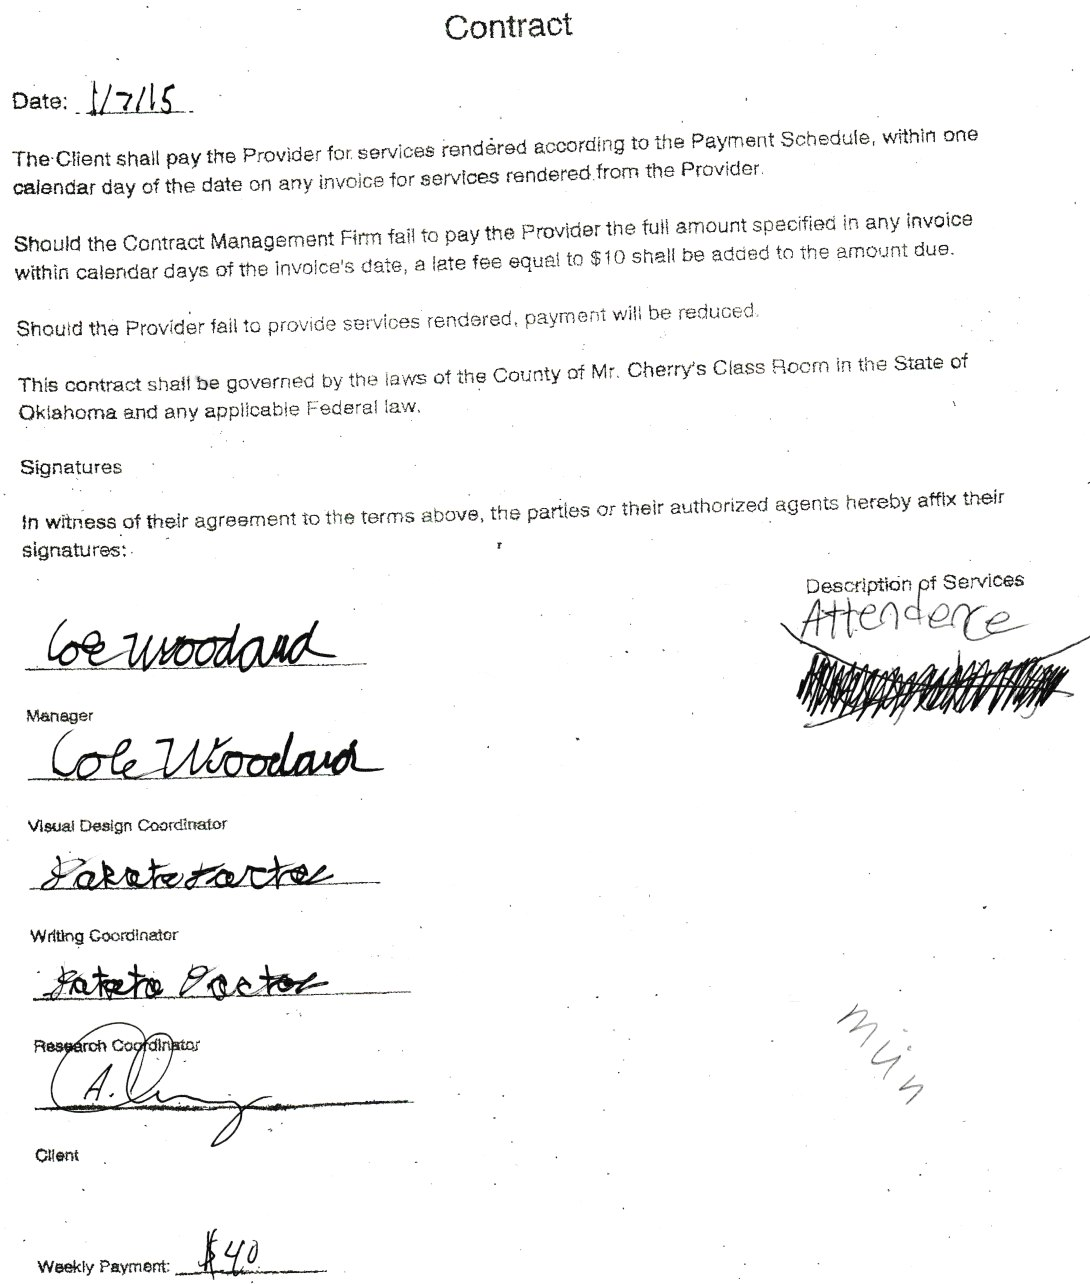 Contract
Date: 1/7/15
The Client shall pay the Provider for services rendered according to the Payment Schedule, within one
calendar day of the date on any invoice for services rendered from the Provider.
Should the Contract Management Firm fail to pay the Provider the full amount specified in any invoice
within calendar days of the invoice's date, a late fee equal to $10 shall be added to the amount due.
Should the Provider fail to provide services rendered, payment will be reduced.
This contract shall be governed by the laws of the County of Mr. Cherry's Class Room in the State of
Oklahoma and any applicable Federal law.
Signatures
In witness of their agreement to the terms above, the parties or their authorized agents hereby affix their
signatures:
Description of Services
Attendence
Cole Woodard
Manager
Cole Woodard
Visual Design Coordinator
Writing Coordinator
Research Coordinator
A.
Client
Weekly Payment: $40